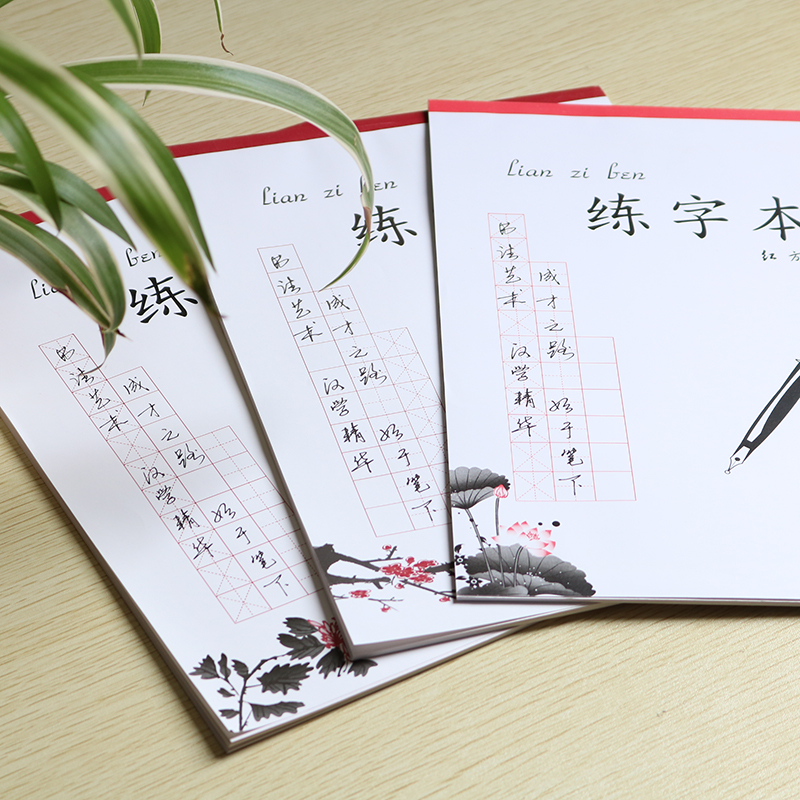 ben
练
书法艺术 汉学精华
成才之路 始于笔下
Lian zi ben
练
书法艺术 汉学精华
成才之路 始于笔下
Lian zi ben
练字本
红方
书法艺术 汉学精华
成才之路 始于笔下